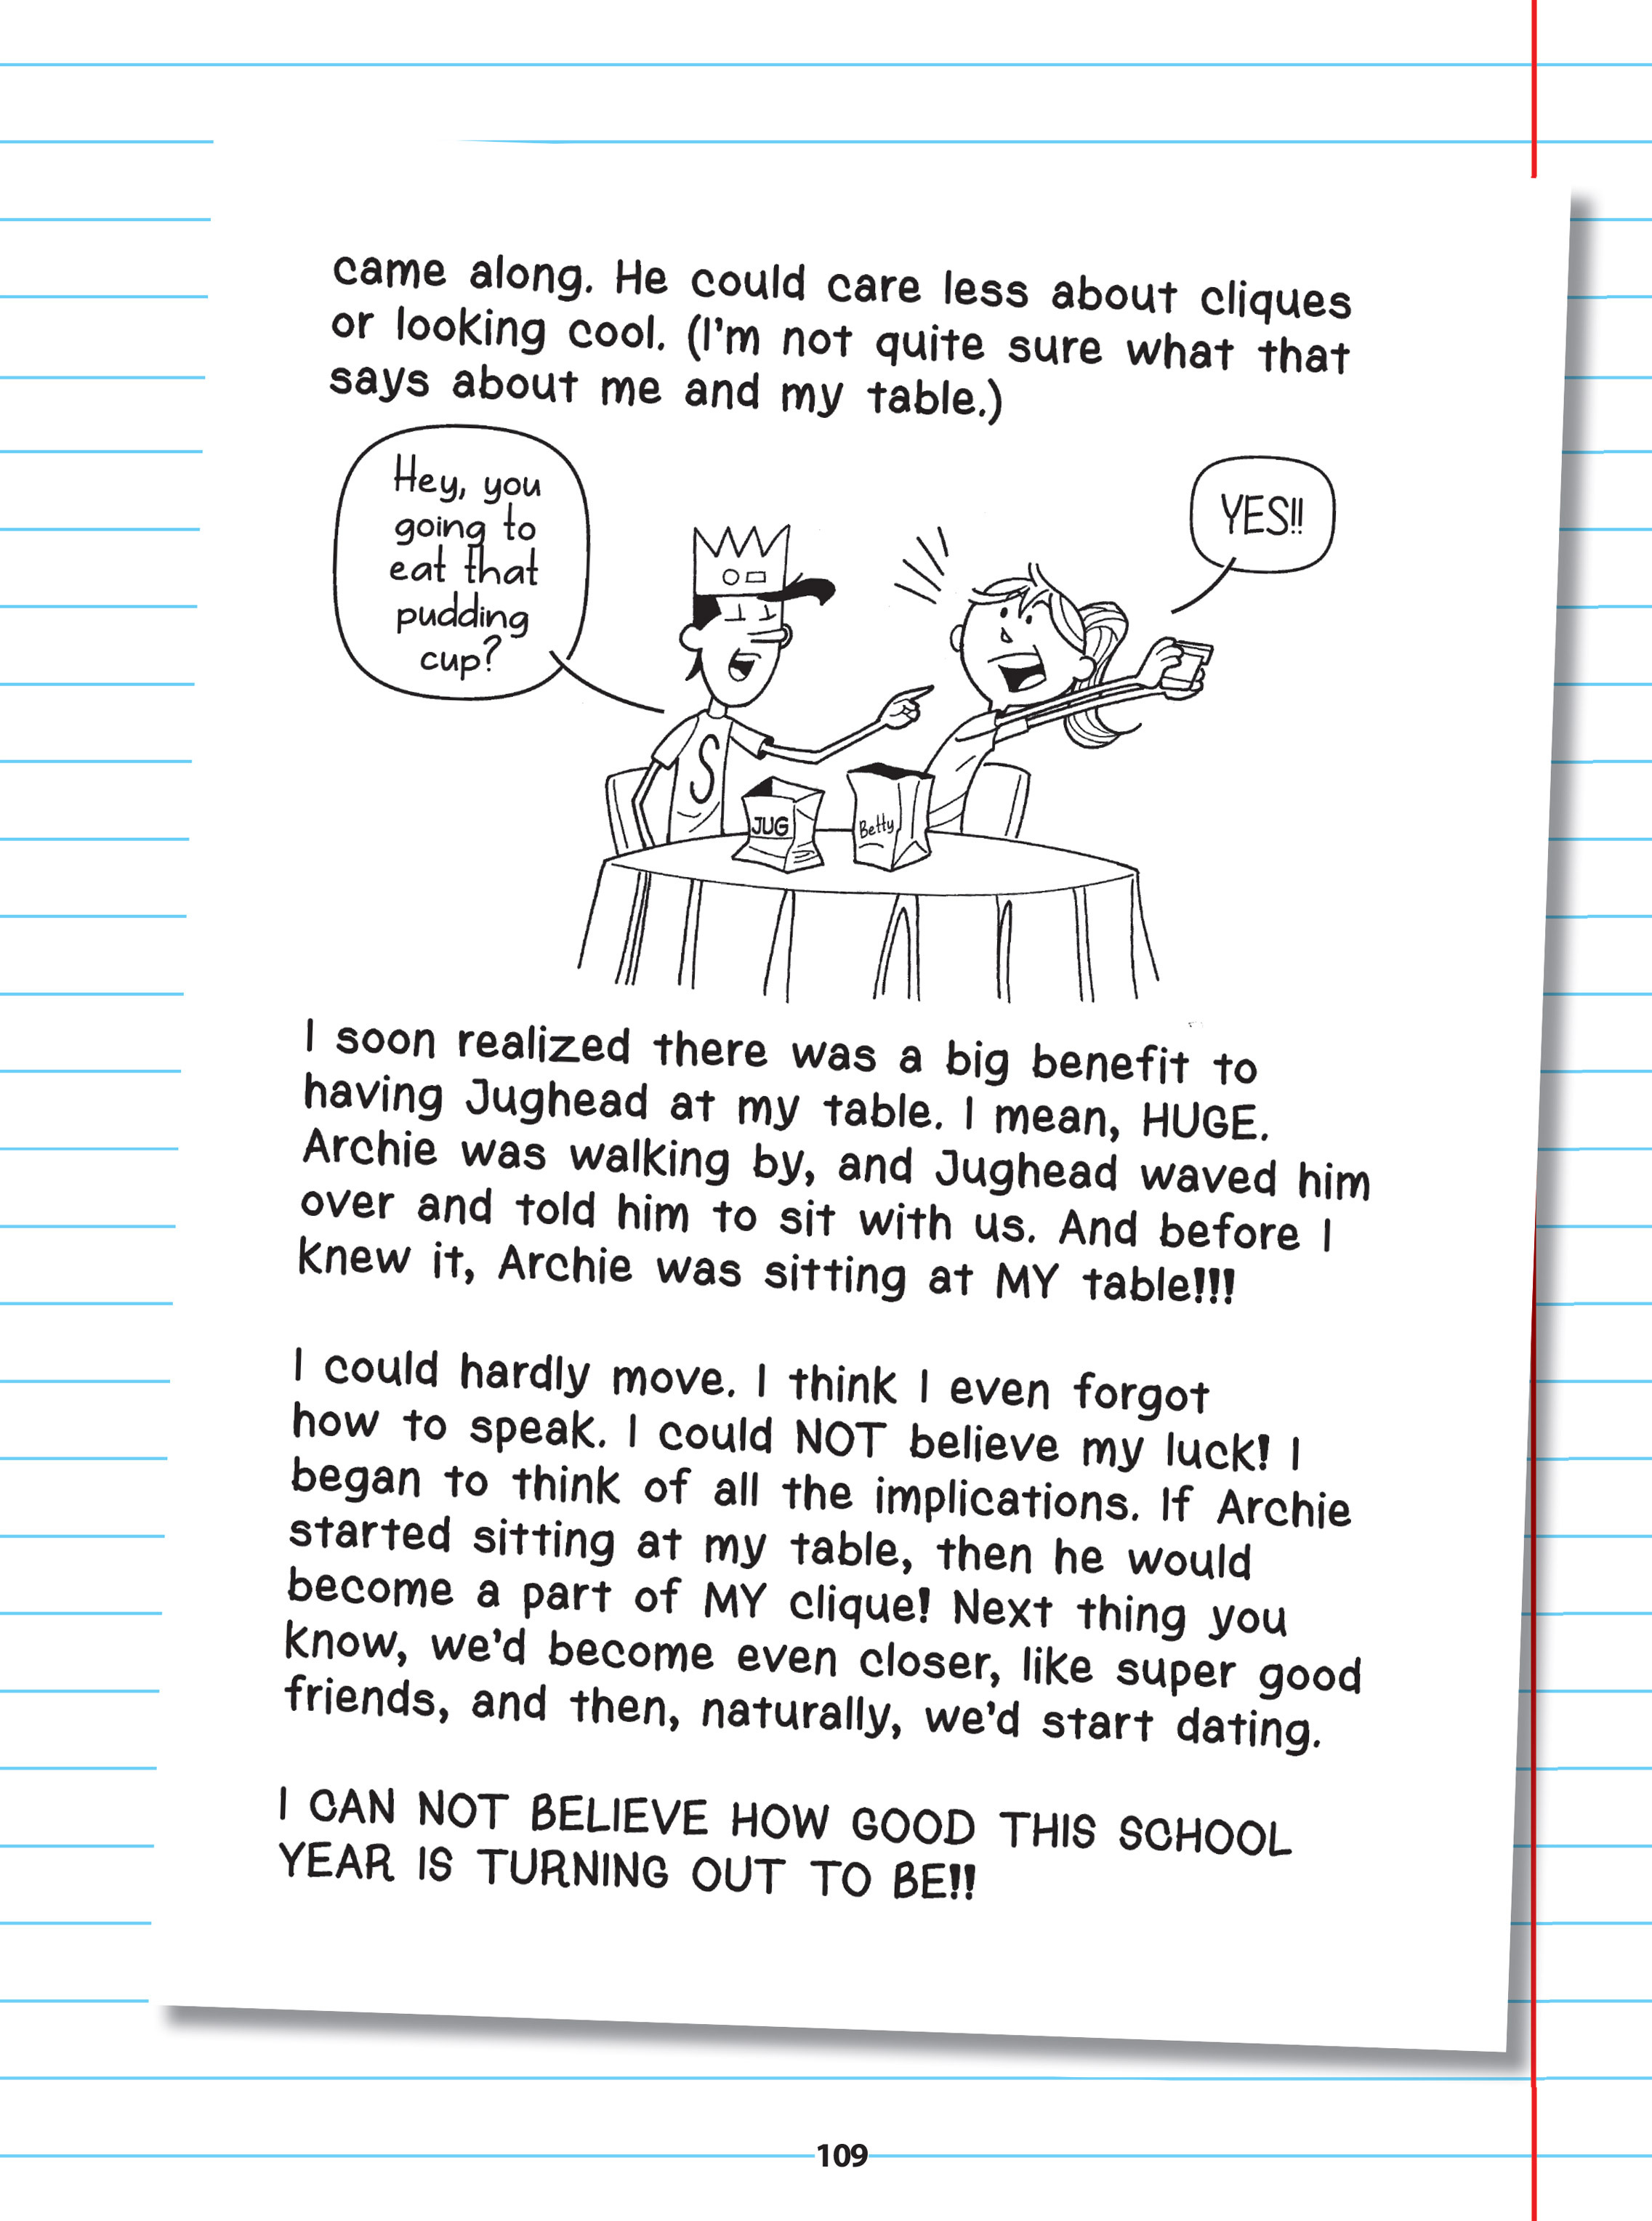 came along. He could care less about cliques
or looking cool. (I'm not quite sure what that
says about me and my table.)
Hey, you
going to
eat that
pudding
cup?
YES!!
S
JUG
Betty
I soon realized there was a big benefit to
having Jughead at my table. I mean, HUGE.
Archie was walking by, and Jughead waved him
over and told him to sit with us. And before I
knew it, Archie was sitting at MY table!!!
I could hardly move. I think I even forgot
how to speak. I could NOT believe my luck! I
began to think of all the implications. If Archie
started sitting at my table, then he would
become a part of MY clique! Next thing you
know, we'd become even closer, like super good
friends, and then, naturally, we'd start dating.
I CAN NOT BELIEVE HOW GOOD THIS SCHOOL
YEAR IS TURNING OUT TO BE!!
109